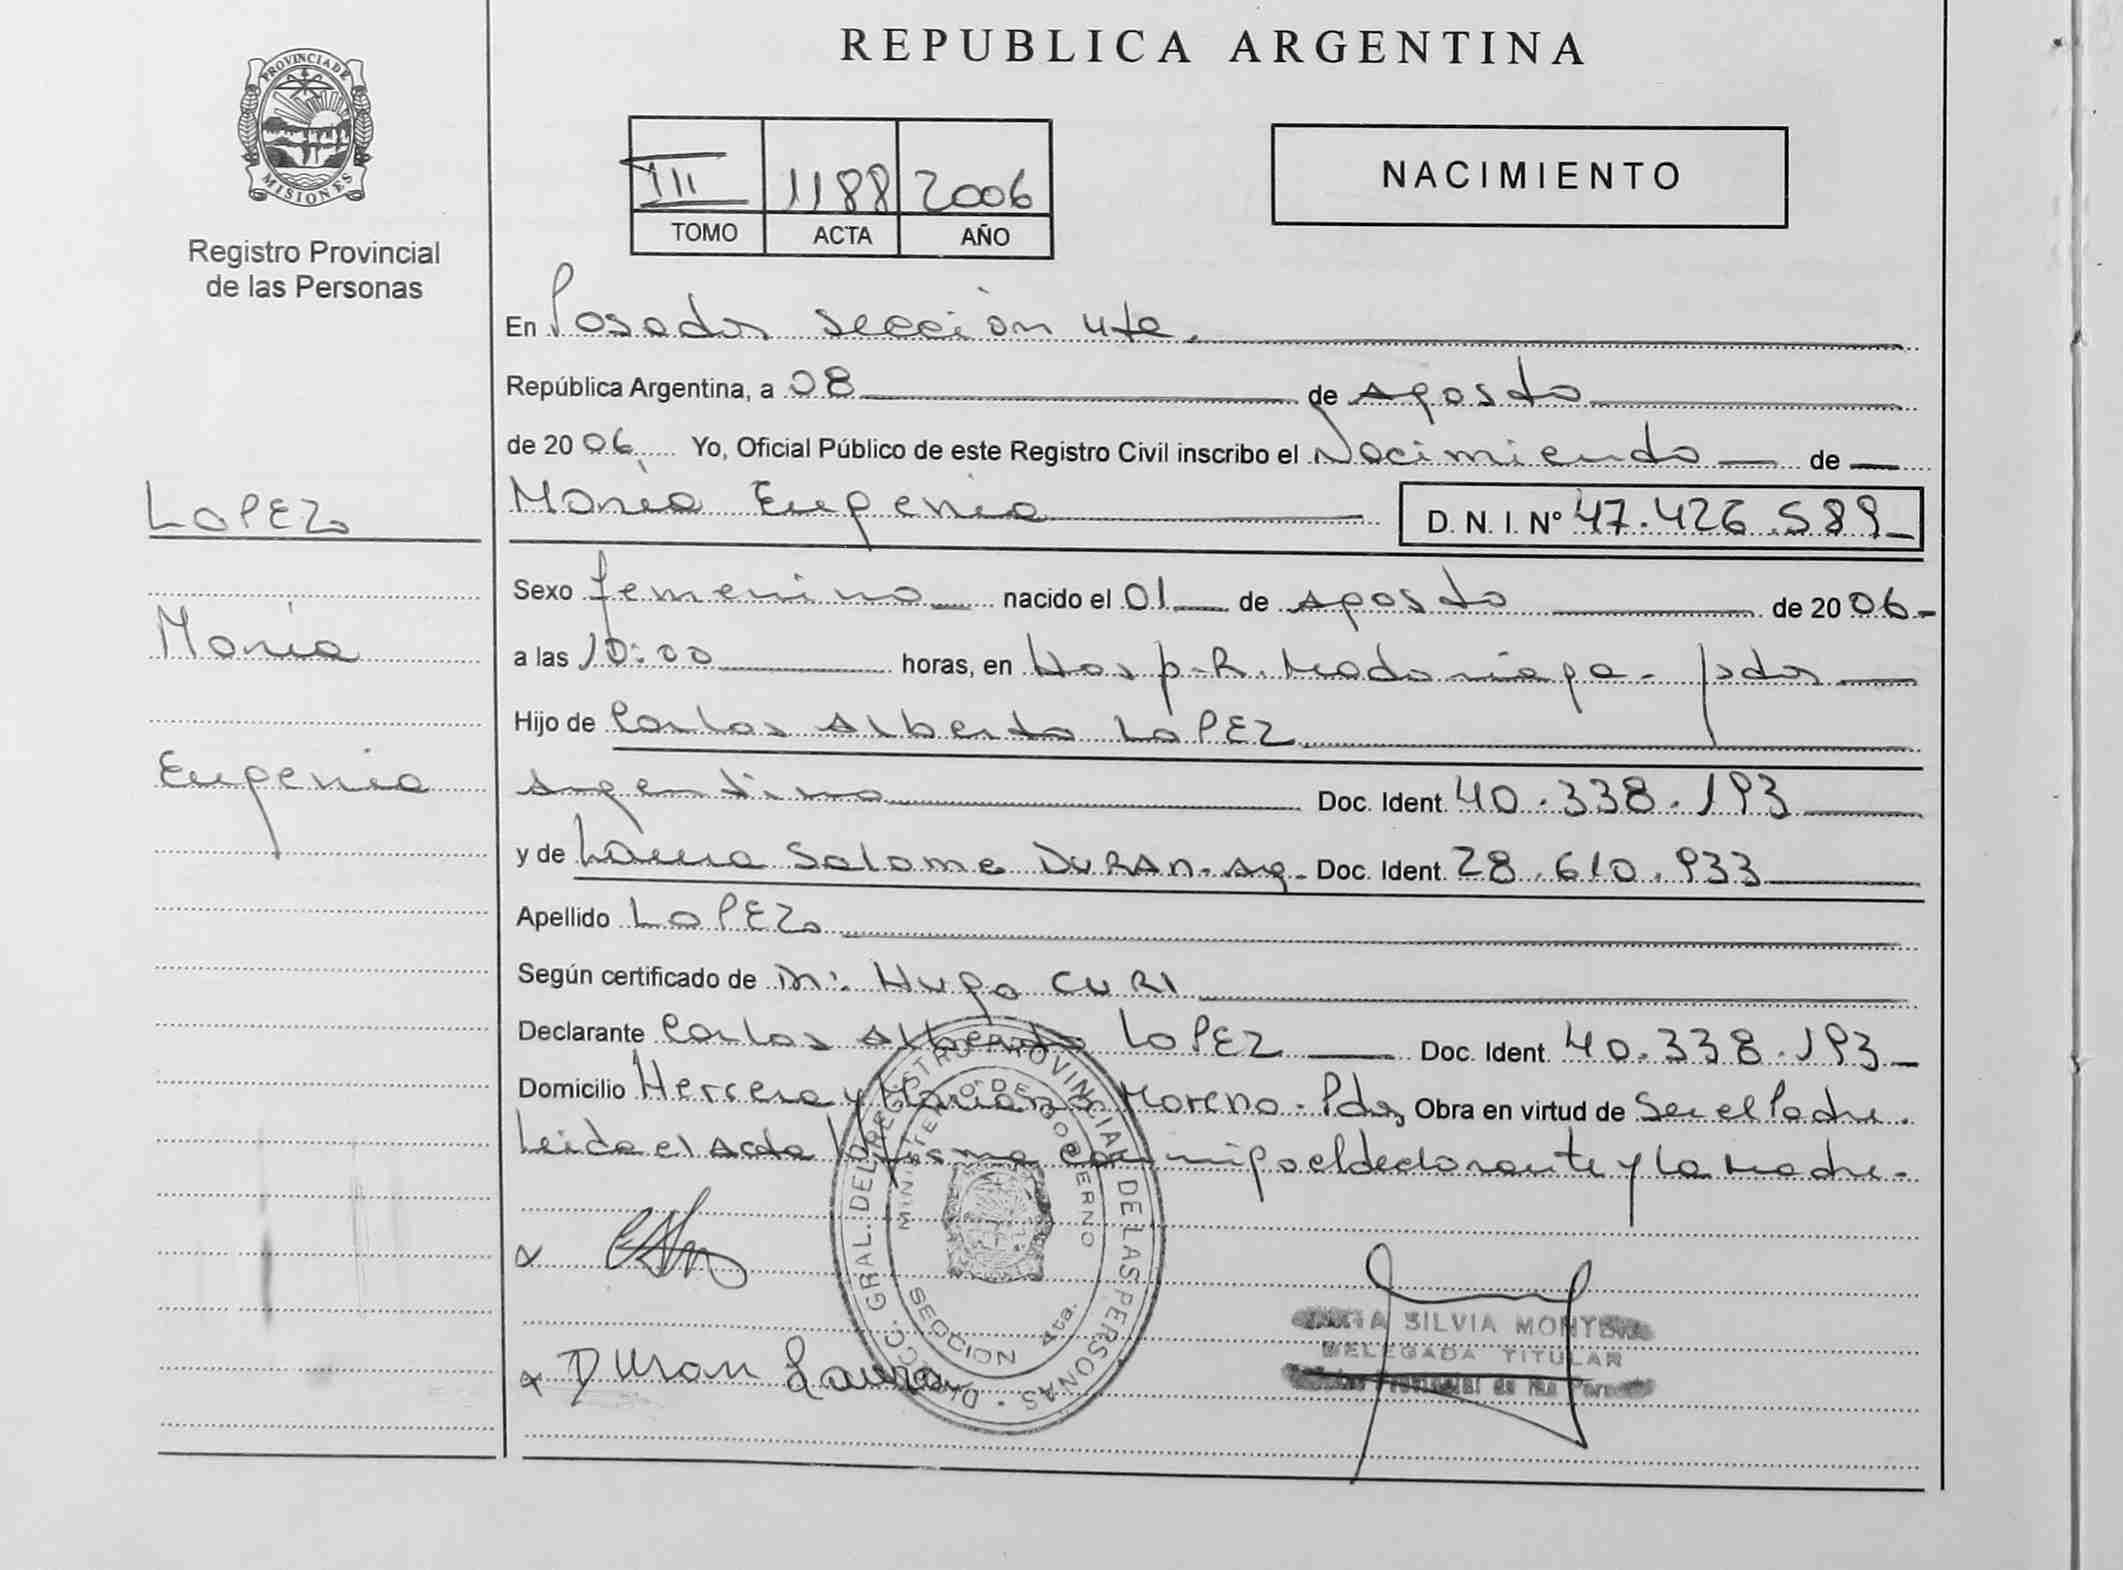 REPUBLICA ARGENTINA
PROVINCIA DE
MISIONES
Registro Provincial
de las Personas
III 1188 2006
TOMO ACTA AÑO
NACIMIENTO
En Posadas sección 4ta.
República Argentina, a 08 de Agosto
de 2006 Yo, Oficial Público de este Registro Civil inscribo el Nacimiento de
LOPEZ
María Eugenia D. N. I. Nº 47.426.589
Sexo femenino nacido el 01 de Agosto de 2006
María
a las 10:00 horas, en Hosp. R. Madariaga - Pdas
Hijo de Carlos Alberto LOPEZ
Eugenia
Argentino Doc. Ident. 40.338.193
y de Laura Salome DURAN - Ag. Doc. Ident. 28.610.933
Apellido LOPEZ
Según certificado de Hugo CURI
Declarante Carlos Alberto LOPEZ Doc. Ident. 40.338.193
Domicilio Herrera y Mariano Moreno - Pdas Obra en virtud de Ser el Padre.
Leida el Acta la firma conmigo el declarante y la Madre.
DCC. GRAL. DEL REGISTRO PROVINCIAL DE LAS PERSONAS
MINISTERIO DE GOBIERNO
SECCION 4ta.
Duran Laura
SILVIA
DELEGADA TITULAR
Provincial de las